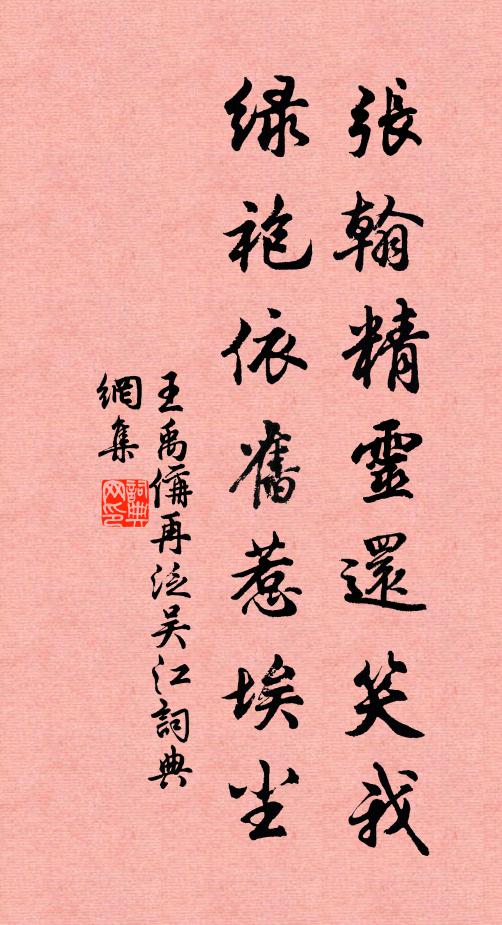 張翰精靈還笑我
緑袍依舊惹埃尘
王禹偁再泛吴江詞典
網集
詞典
网印